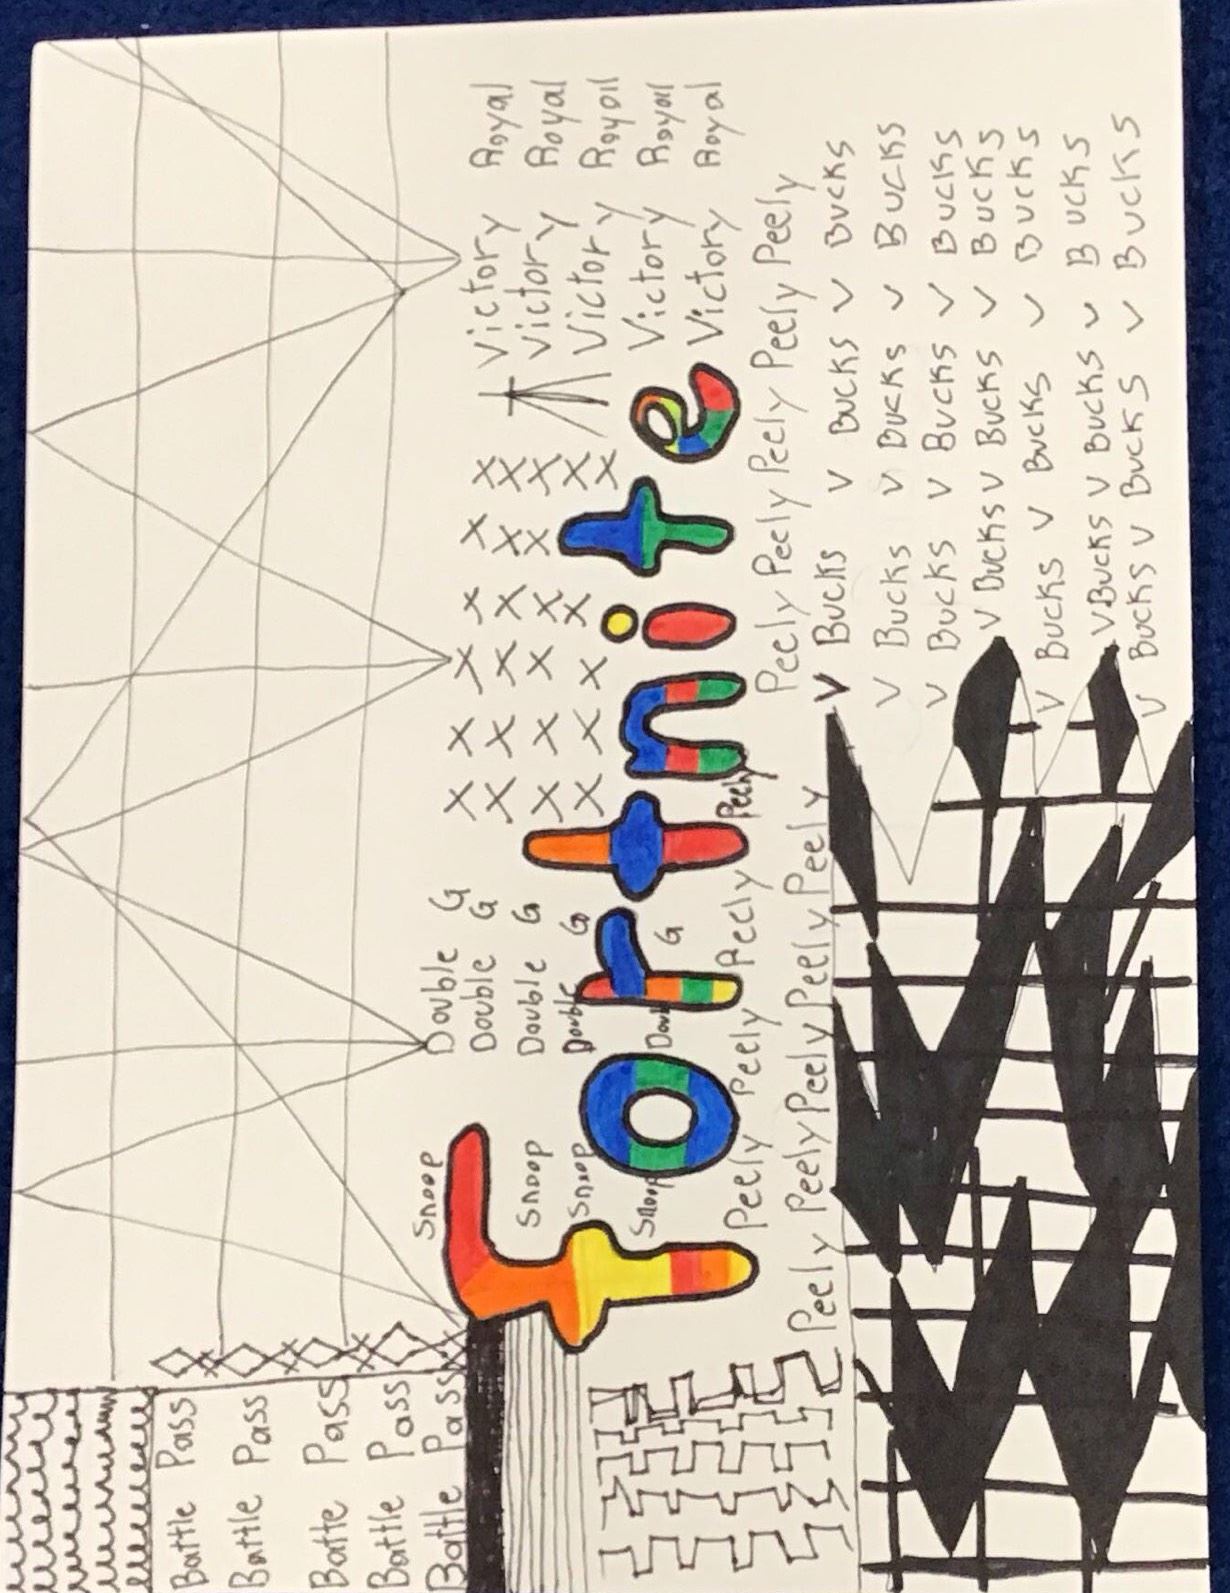 Battle Pass
Battle Pass
Batte Pass
Battle Pass
Battle Pass
Snoop Double G
Double G Victory Royal
Snoop Double G Victory Royal
Snoop Double G Victory Royal
Snoop G Victory Royal
Victory Royal
Fortnite
Peely Peely Peely Peely Peely Peely Peely Peely Peely
Peely Peely Peely Peely Peely Peely
V Bucks V Bucks V Bucks
V Bucks V Bucks V Bucks
V Bucks V Bucks V Bucks
V Bucks V Bucks V Bucks
V Bucks V Bucks V Bucks
V Bucks V Bucks V Bucks
V Bucks V Bucks V Bucks